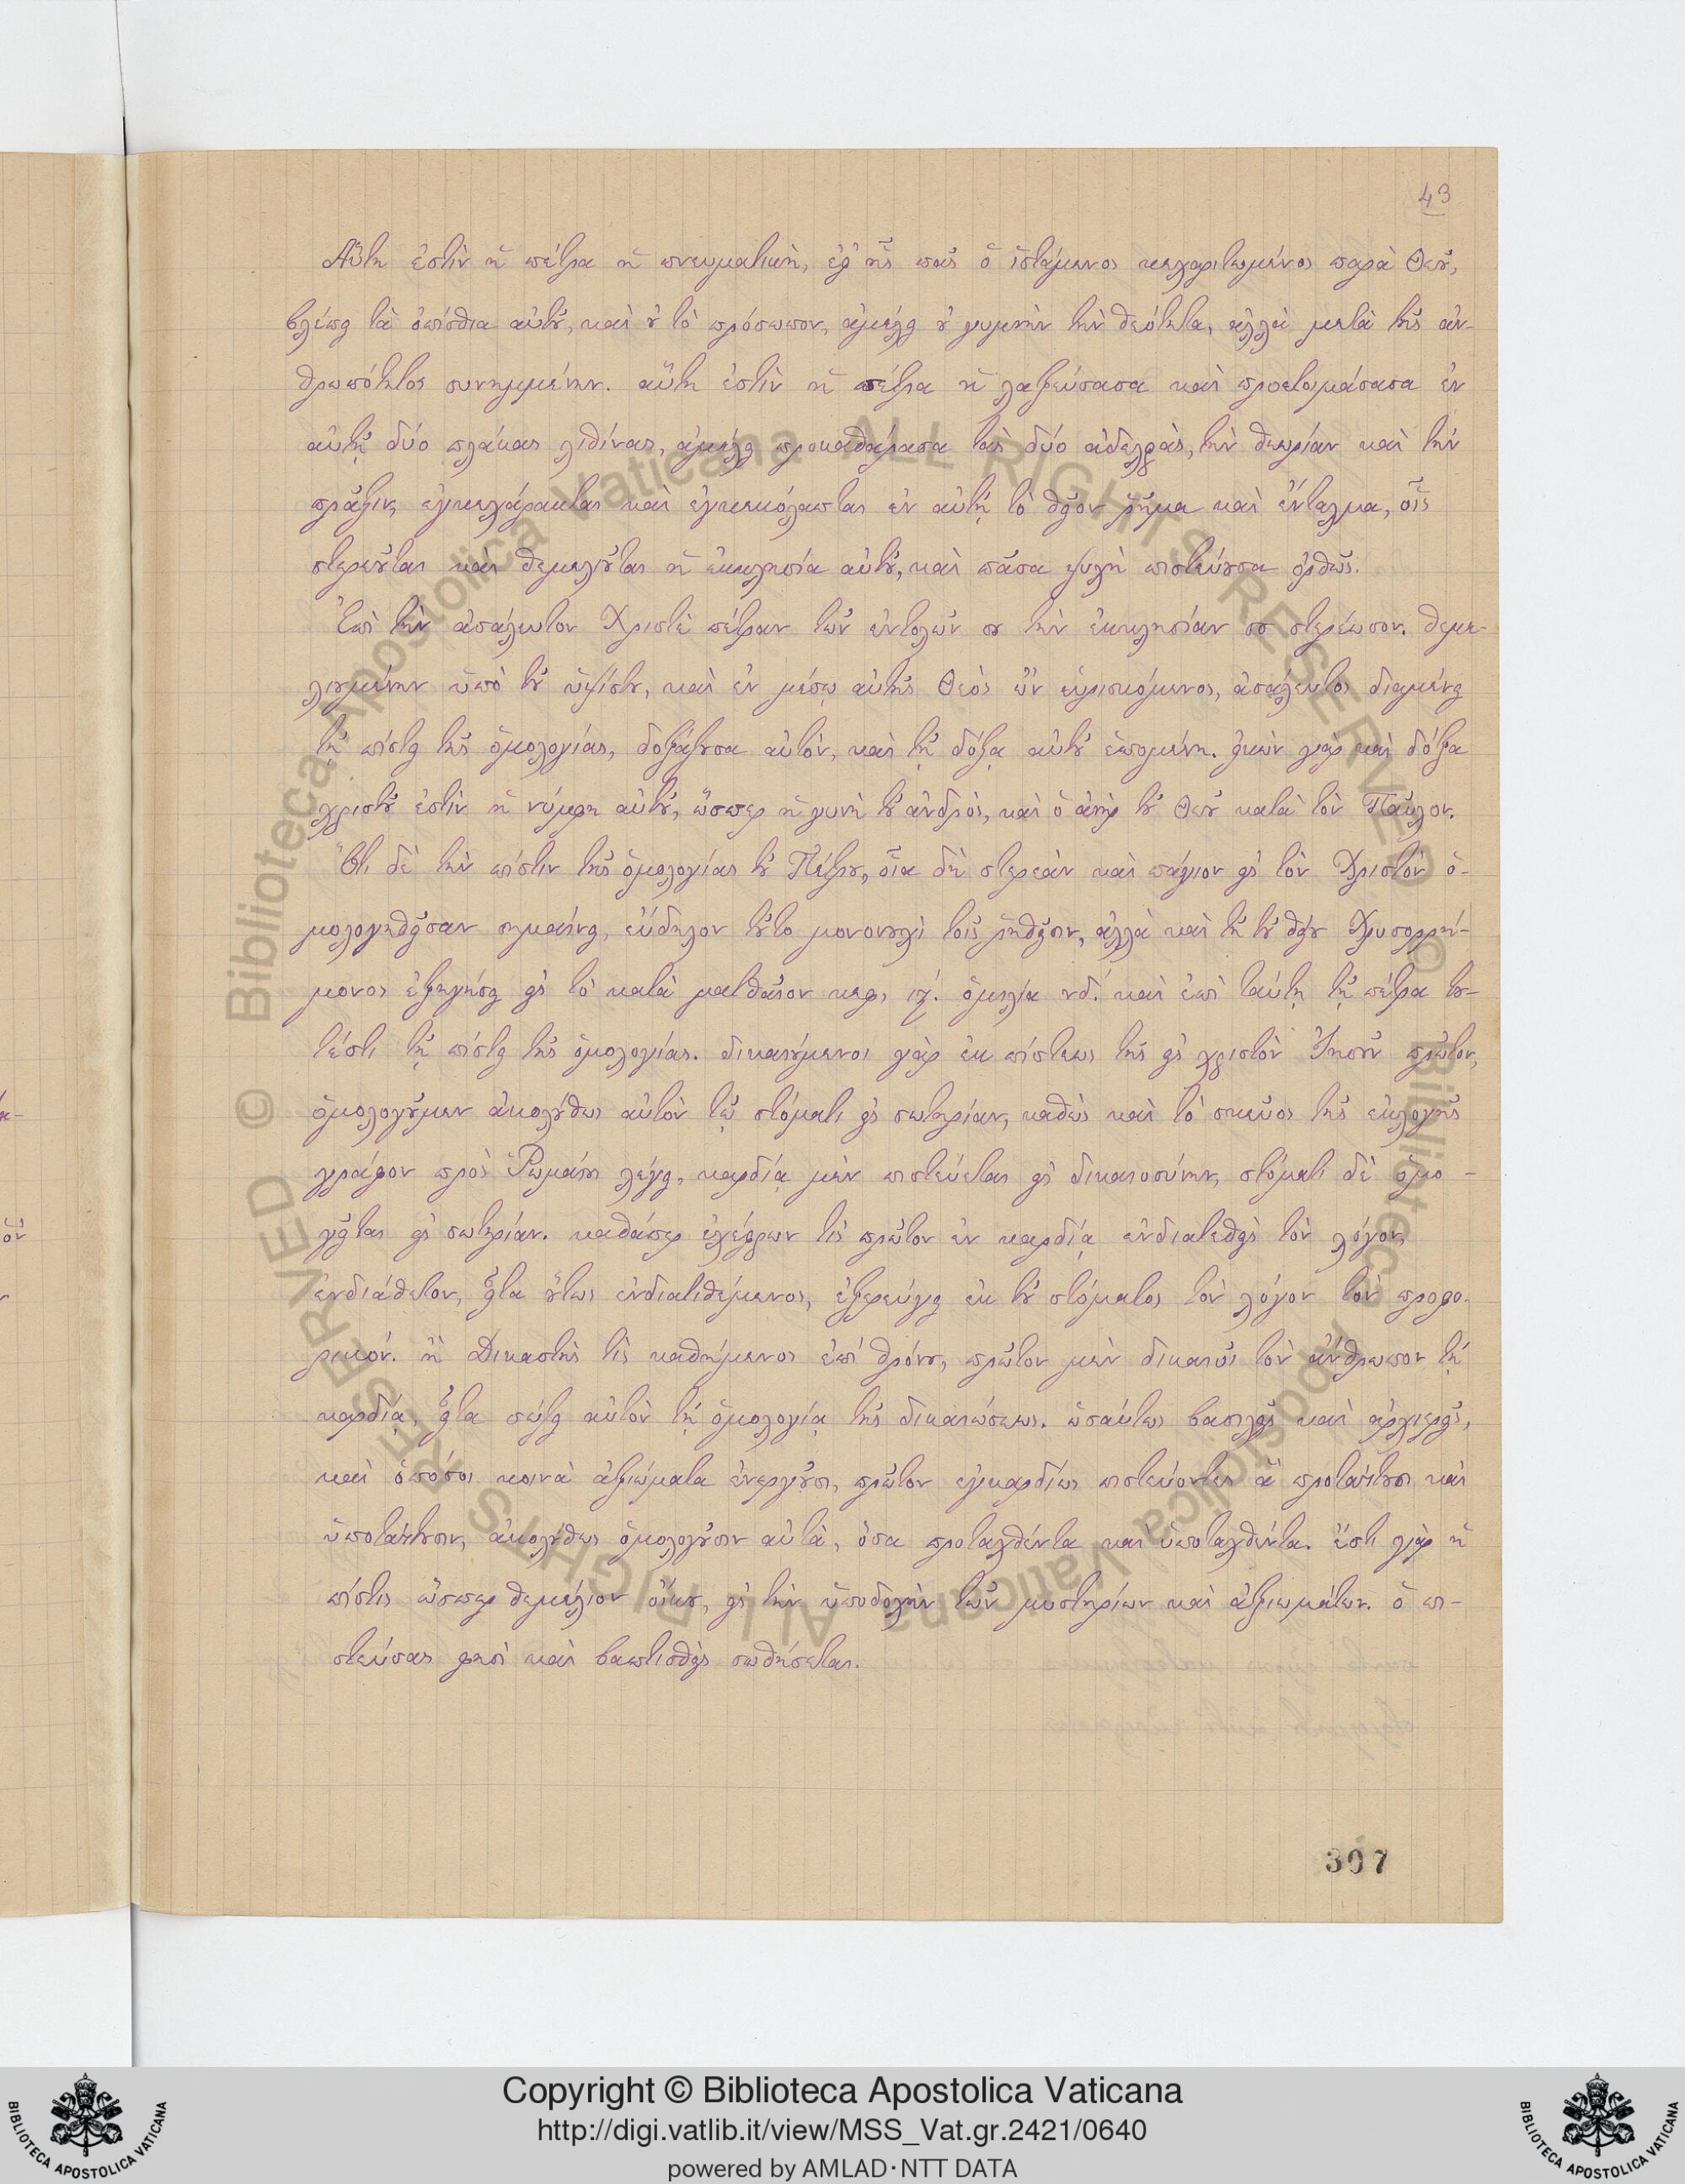 43
Αὕτη ἐστὶν ἡ πέτρα ἡ πνευματικὴ, ἐφ' ἧς πᾶς ὁ ἱστάμενος κεχαριτωμένος παρὰ Θεοῦ,
βλέπει τὰ ὀπίσθια αὐτοῦ, καὶ οὐ τὸ πρόσωπον, ἀμέλει οὐ γυμνὴν τὴν θεότητα, ἀλλὰ μετὰ τῆς ἀν-
θρωπότητος συνημμένην. αὕτη ἐστὶν ἡ πέτρα ἡ λαξεύσασα καὶ προετοιμάσασα ἐν
αὐτῇ δύο πλάκας λιθίνας, ἀμέλει προκαθάρασα τὰς δύο ἀδελφὰς, τὴν θεωρίαν καὶ τὴν
πρᾶξιν, ἐγκεχάρακται καὶ ἐγκεκόλαπται ἐν αὐτῇ τὸ θεῖον ῥῆμα καὶ ἔνταλμα, οἷς
στερεοῦται καὶ θεμελιοῦται ἡ ἐκκλησία αὐτοῦ, καὶ πᾶσα ψυχὴ πιστεύουσα ὀρθῶς.
Ἐπὶ τὴν ἀσάλευτον Χριστὲ πέτραν τῶν ἐντολῶν σου τὴν ἐκκλησίαν σου στερέωσον. θεμε-
λιουμένην ὑπὸ τοῦ ὑψίστου, καὶ ἐν μέσῳ αὐτῆς Θεὸς ὢν εὑρισκόμενος, ἀσάλευτος διαμένει
τῇ πίστει τῆς ὁμολογίας, δοξάζουσα αὐτὸν, καὶ τῇ δόξᾳ αὐτοῦ ἑπομένη. εἰκὼν γὰρ καὶ δόξα
χριστοῦ ἐστὶν ἡ νύμφη αὐτοῦ, ὥσπερ ἡ γυνὴ τοῦ ἀνδρὸς, καὶ ὁ ἀνὴρ τοῦ Θεοῦ κατὰ τὸν Παῦλον.
Ὅτι δὲ τὴν πίστιν τῆς ὁμολογίας τοῦ Πέτρου, οἷα δὴ στερεὰν καὶ πάγιον εἰς τὸν Χριστὸν ὁ-
μολογηθεῖσαν σημαίνει, εὔδηλον τοῦτο μονονουχὶ τοῖς ῥηθεῖσιν, ἀλλὰ καὶ τῇ τοῦ θείου Χρυσορρή-
μονος ἐξηγήσει εἰς τὸ κατὰ ματθαῖον κεφ, ιζ. ὁμιλία νδ. καὶ ἐπὶ ταύτῃ τῇ πέτρᾳ του-
τέστι τῇ πίστει τῆς ὁμολογίας. δικαιούμενοι γὰρ ἐκ πίστεως τῆς εἰς χριστὸν Ἰησοῦν πρῶτον,
ὁμολογοῦμεν ἀκολούθως αὐτὸν τῷ στόματι εἰς σωτηρίαν, καθὼς καὶ τὸ σκεῦος τῆς ἐκλογῆς
γράφον πρὸς Ῥωμαίοις λέγει, καρδίᾳ μὲν πιστεύεται εἰς δικαιοσύνην, στόματι δὲ ὁμο-
γεῖται εἰς σωτηρίαν. καθάπερ ἐχέφρων τὶς πρῶτον ἐν καρδίᾳ ἐνδιατεθεὶς τὸν λόγον,
ἐνδιάθετον, εἶτα οὕτως ἐνδιατιθέμενος, ἐξερεύγει ἐκ τοῦ στόματος τὸν λόγον τὸν προφο-
ρικόν. ἢ Δικαστὴς τὶς καθήμενος ἐπὶ θρόνου, πρῶτον μὲν δικαιοῖ τὸν ἄνθρωπον τῇ
καρδίᾳ, εἶτα σώζει αὐτὸν τῇ ὁμολογίᾳ τῆς δικαιώσεως. ὡσαύτως βασιλεῖς καὶ ἀρχιερεῖς,
καὶ ὁπόσοι κοινὰ ἀξιώματα ἐνεργοῦσι, πρῶτον ἐγκαρδίως πιστεύοντες ἃ προτάττουσι καὶ
ὑποτάττουσιν, ἀκολούθως ὁμολογοῦσιν αὐτὰ, ὅσα προταχθέντα καὶ ὑποταχθέντα. ἔστι γὰρ ἡ
πίστις ὥσπερ θεμέλιον οἴκου, εἰς τὴν ὑποδοχὴν τῶν μυστηρίων καὶ ἀξιωμάτων. ὁ πι-
στεύσας φησὶ καὶ βαπτισθεὶς σωθήσεται.
307
Copyright © Biblioteca Apostolica Vaticana
http://digi.vatlib.it/view/MSS_Vat.gr.2421/0640
powered by AMLAD·NTT DATA